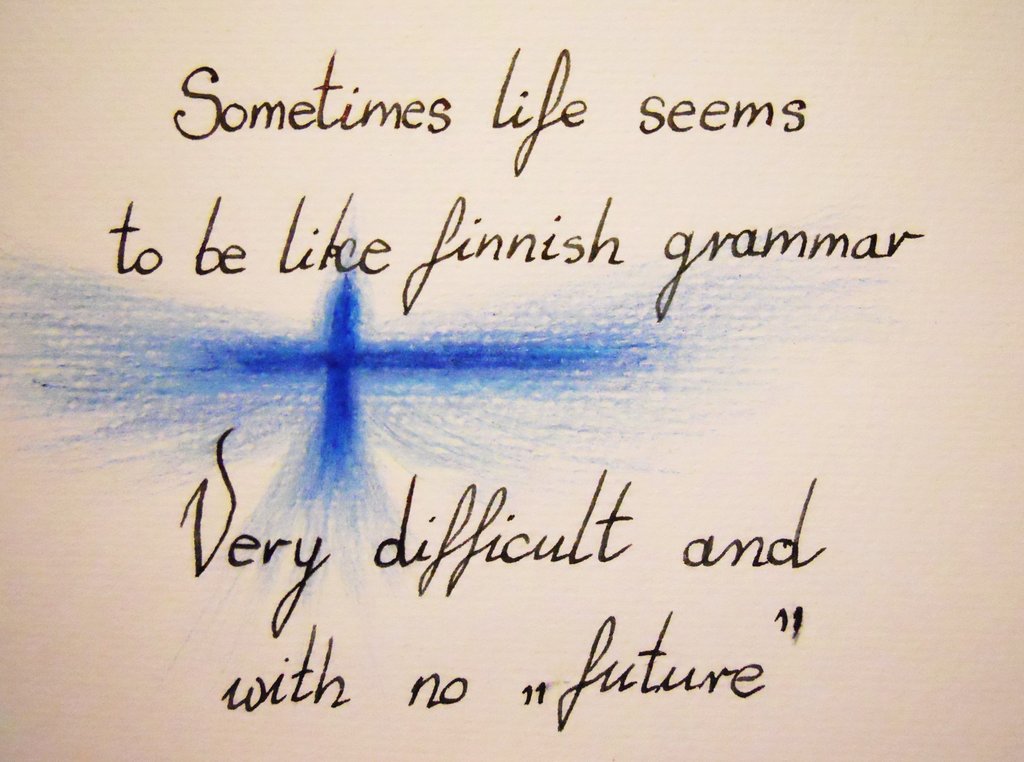 Sometimes life seems
to be like finnish grammar
Very difficult and
with no „future”